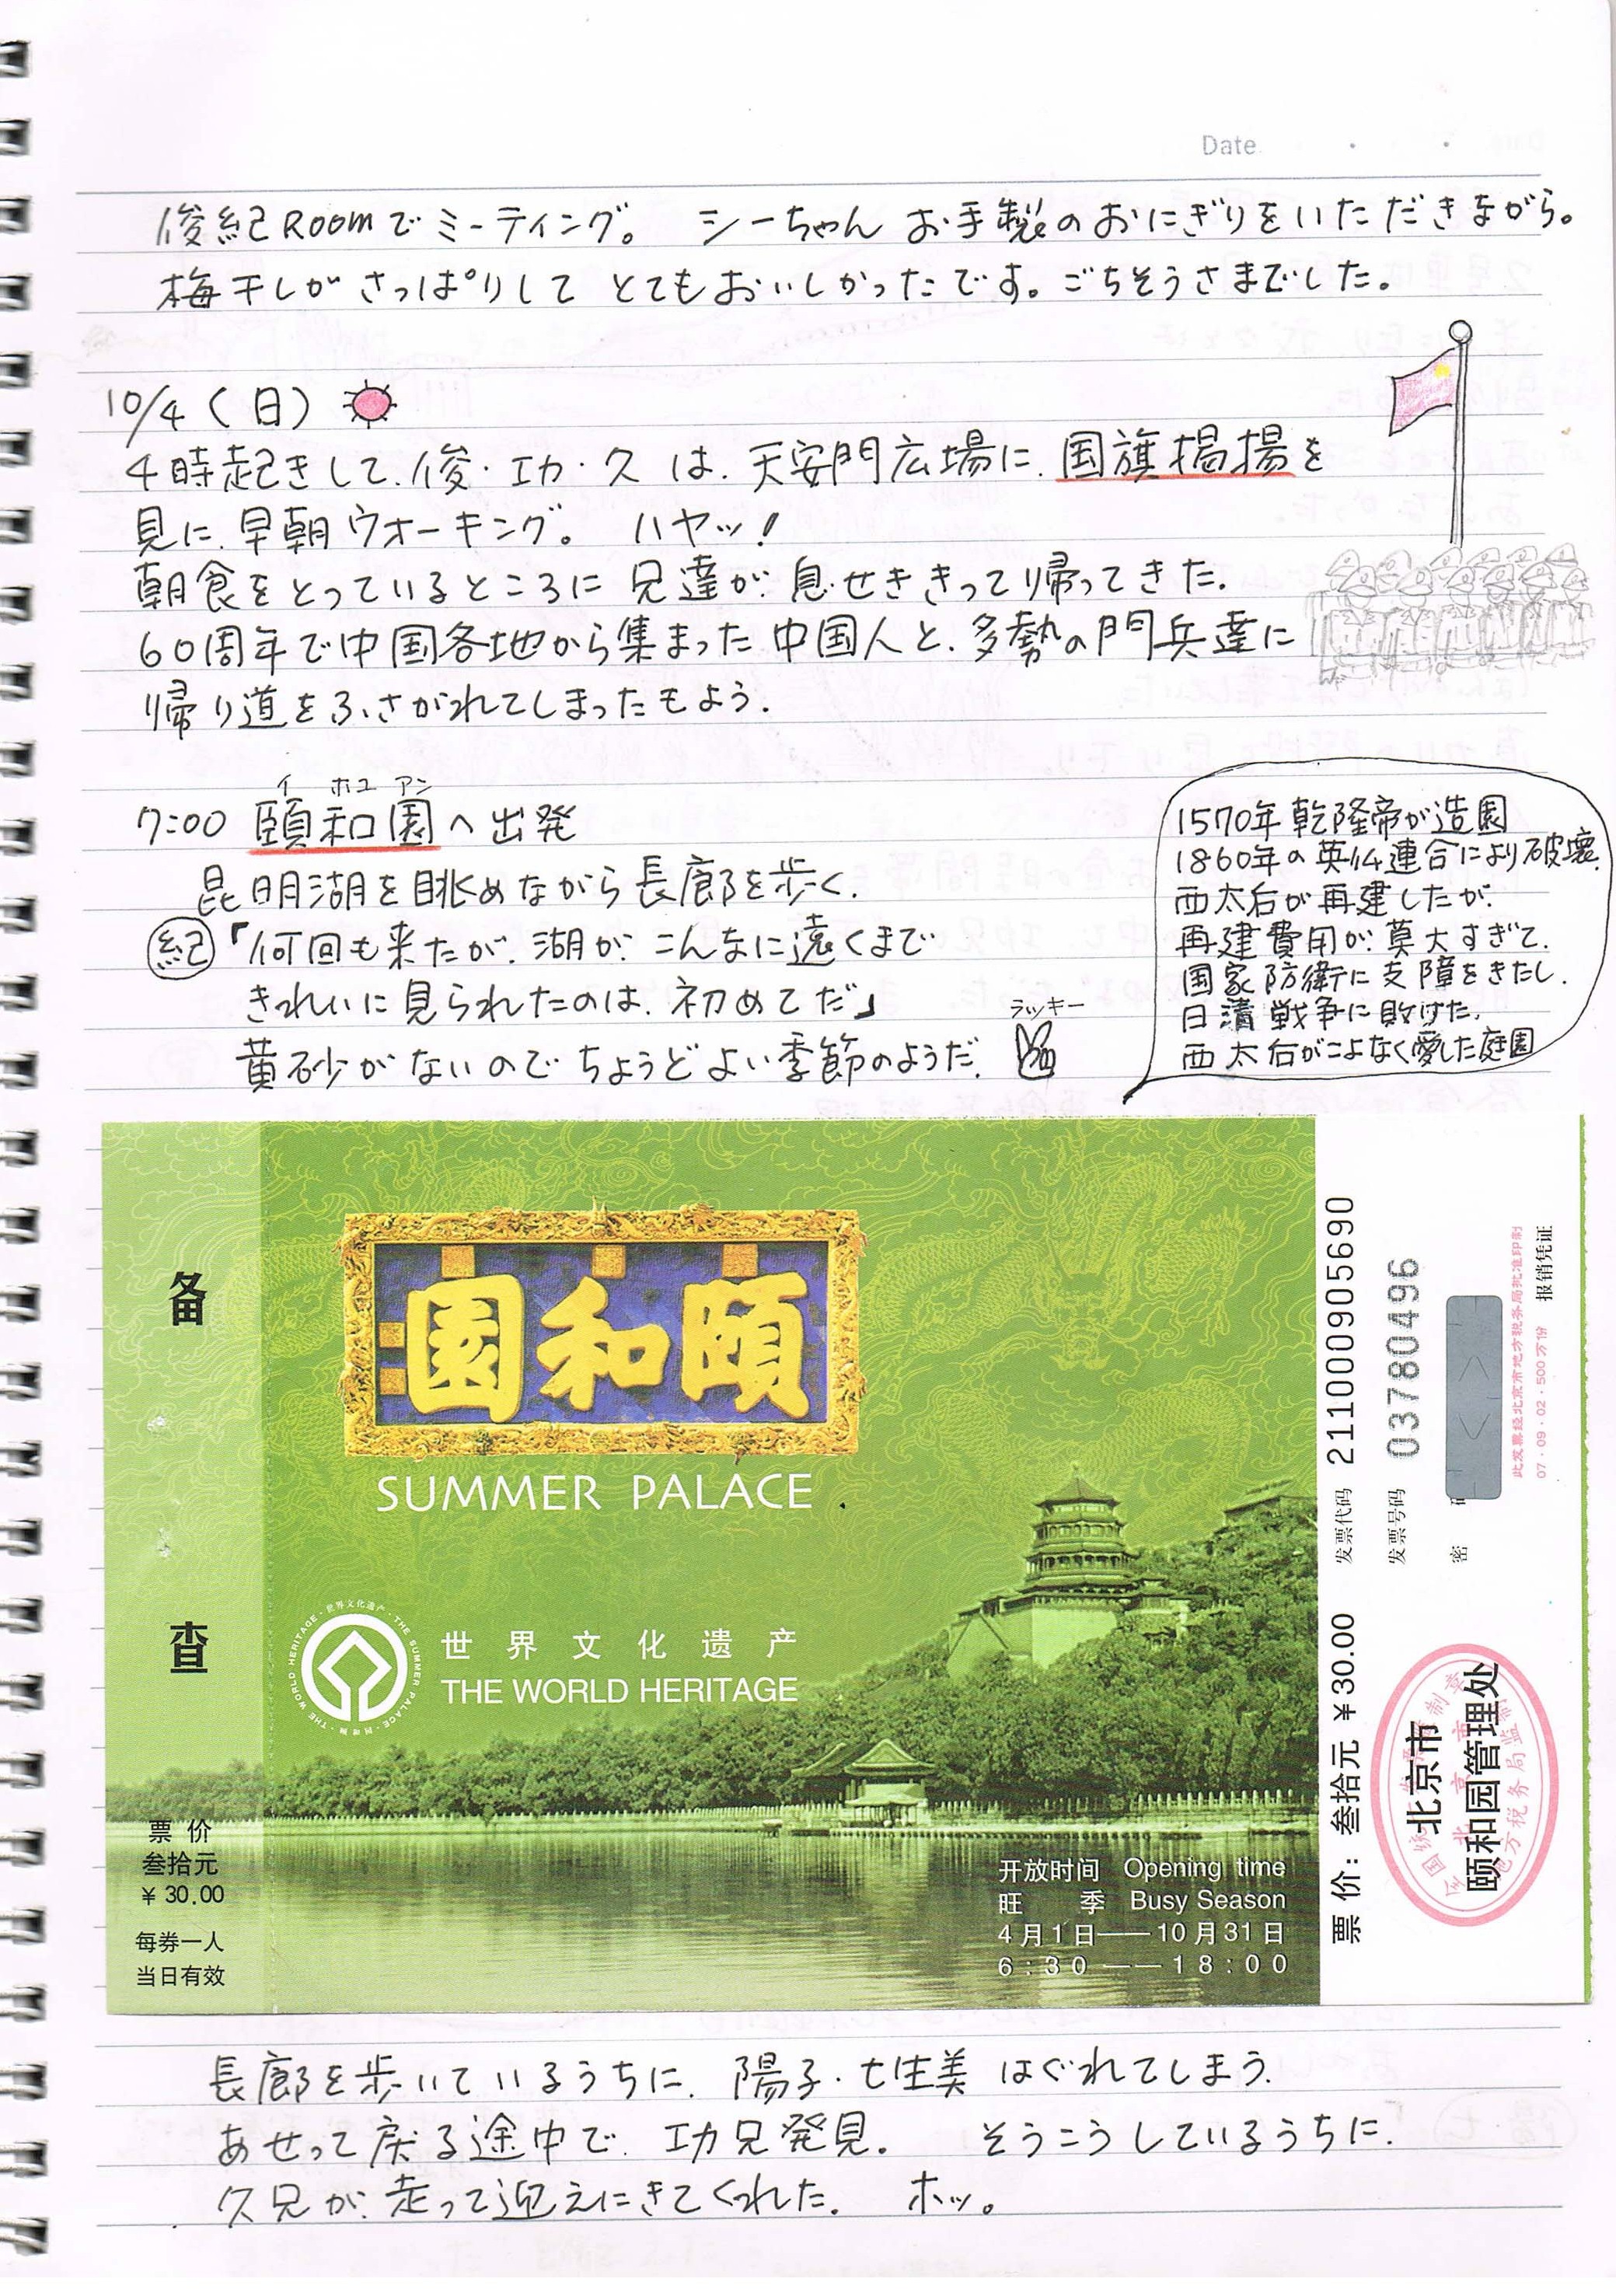 Date
俊紀Roomでミーティング。 シーちゃん お手製のおにぎりをいただきながら。
梅干しが さっぱりして とてもおいしかったです。ごちそうさまでした。
10/4(日)
4時起きして、俊・功・久 は、天安門広場に、国旗掲揚を
見に、早朝ウオーキング。 ハヤッ!
朝食をとっているところに 兄達が、息せききって帰ってきた。
60周年で中国各地から集まった 中国人と、多勢の門兵達に
帰り道をふさがれてしまったもよう。
イ ホユ アン
7:00 頤和園へ出発
昆明湖を眺めながら長廊を歩く。
紀「何回も来たが、湖が、こんなに遠くまで
きれいに見られたのは、初めてだ」
黄砂がないので ちょうどよい季節のようだ。
ラッキー
1570年 乾隆帝が造園
1860年の英仏連合により破壊。
西太后が再建したが、
再建費用が、莫大すぎて、
国家防衛に支障をきたし、
日清戦争に敗けた。
西太后がこよなく愛した庭園
备
查
票 价
叁拾元
¥ 30.00
每券一人
当日有效
園和頤
SUMMER PALACE
世界文化遗产
THE WORLD HERITAGE
·世界文化遗产·THE SUMMER PALACE·頤和園·THE WORLD HERITAGE
开放时间 Opening time
旺 季 Busy Season
4月1日——10月31日
6:30——18:00
票 价: 叁拾元 ¥30.00 发票代码 211000905690
发票号码 03780496
密 码
此发票经北京市地方税务局批准印制
07·09·02·500万份 报销凭证
北京市
颐和园管理处
長廊を歩いているうちに、陽子・七生美 はぐれてしまう。
あせって戻る途中で、功兄発見。 そうこうしているうちに、
久兄が、走って迎えにきてくれた。 ホッ。